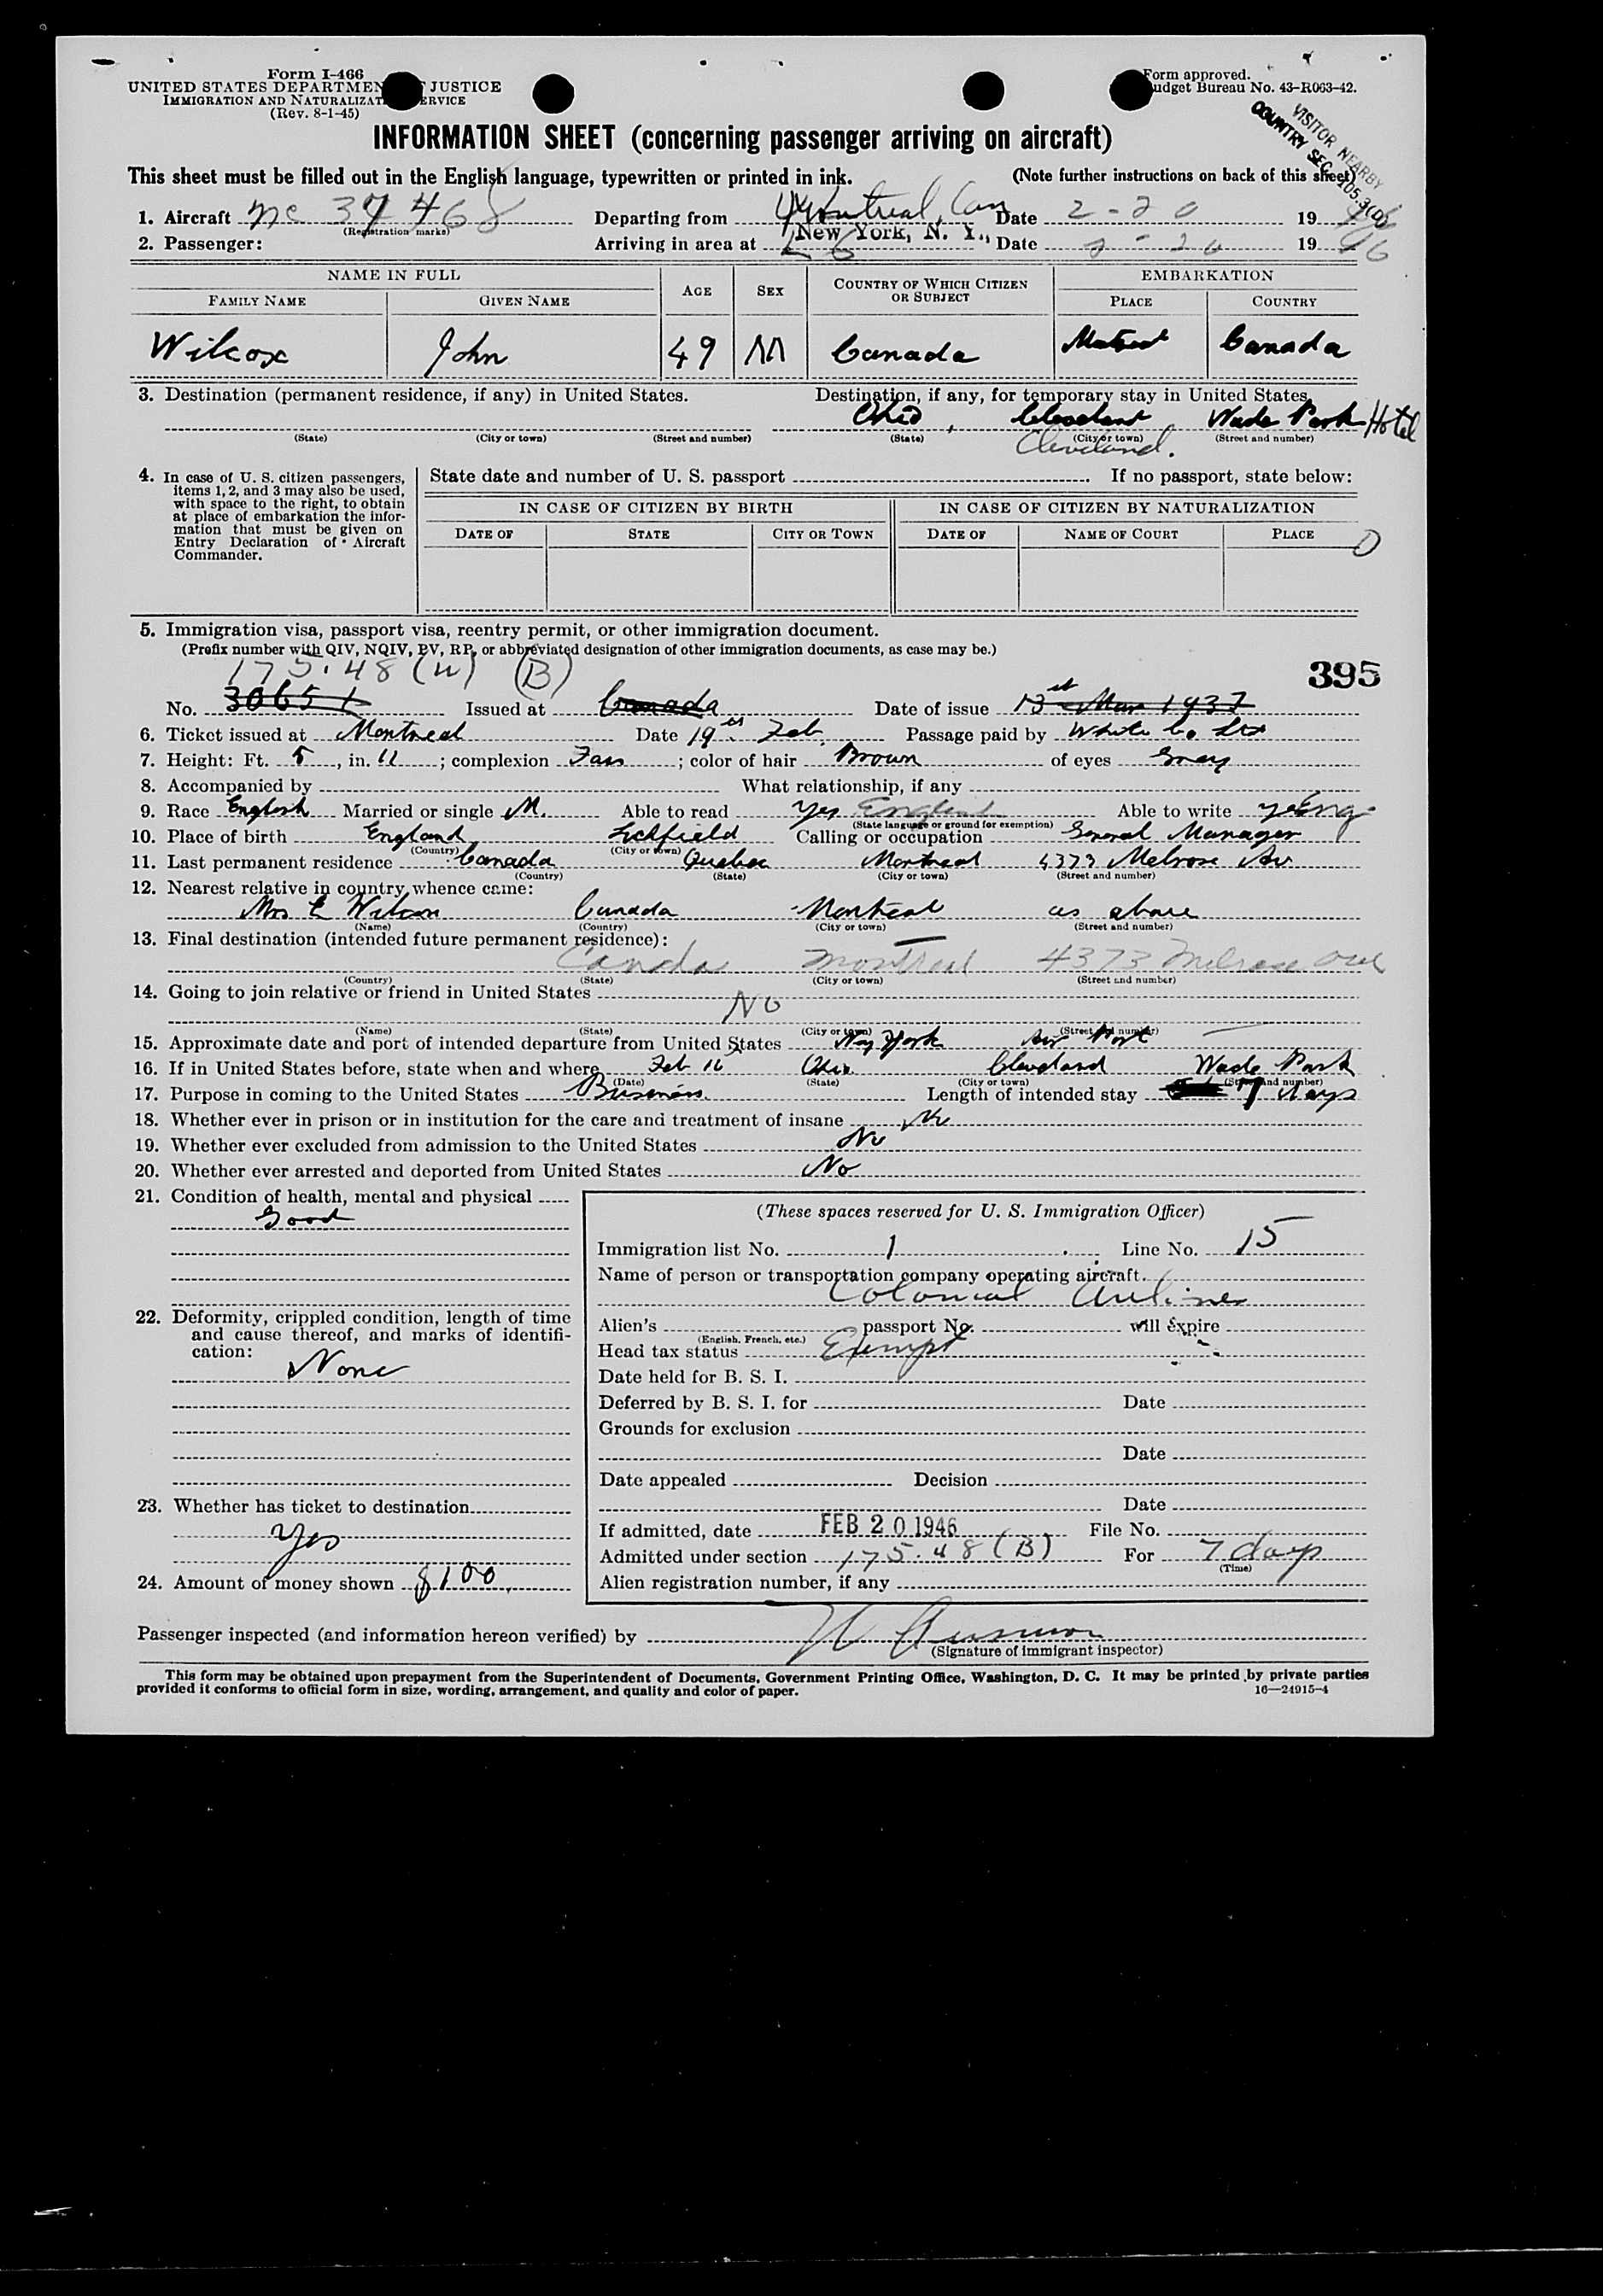 Form I-466
UNITED STATES DEPARTMENT OF JUSTICE
IMMIGRATION AND NATURALIZATION SERVICE
(Rev. 8-1-45)
Form approved.
Budget Bureau No. 43-R063-42.
VISITOR NEARBY
COUNTRY SEC. 105.3(D)
INFORMATION SHEET (concerning passenger arriving on aircraft)
This sheet must be filled out in the English language, typewritten or printed in ink. (Note further instructions on back of this sheet)
1. Aircraft nc 37468 Departing from Montreal, Can Date 2-20 1946
(Registration marks)
2. Passenger: Arriving in area at New York, N. Y., Date 2-20 1946
NAME IN FULL AGE SEX COUNTRY OF WHICH CITIZEN OR SUBJECT EMBARKATION
FAMILY NAME GIVEN NAME PLACE COUNTRY
Wilcox John 49 M Canada Montreal Canada
3. Destination (permanent residence, if any) in United States. Destination, if any, for temporary stay in United States
Ohio, Cleveland Wade Park Hotel
(State) (City or town) (Street and number) (State) (City or town) (Street and number)
Cleveland.
4. In case of U. S. citizen passengers, items 1, 2, and 3 may also be used, with space to the right, to obtain at place of embarkation the information that must be given on Entry Declaration of Aircraft Commander.
State date and number of U. S. passport If no passport, state below:
IN CASE OF CITIZEN BY BIRTH IN CASE OF CITIZEN BY NATURALIZATION
DATE OF STATE CITY OR TOWN DATE OF NAME OF COURT PLACE
5. Immigration visa, passport visa, reentry permit, or other immigration document.
(Prefix number with QIV, NQIV, PV, RP, or abbreviated designation of other immigration documents, as case may be.)
175.48 (B)
395
No. 30651 Issued at Canada Date of issue 13th Mar 1937
6. Ticket issued at Montreal Date 19th Feb. Passage paid by White Co Ltd
7. Height: Ft. 5, in. 11; complexion Fair; color of hair Brown of eyes Grey
8. Accompanied by What relationship, if any
9. Race English Married or single M. Able to read Yes English Able to write yes Eng
(State language or ground for exemption)
10. Place of birth England Lichfield Calling or occupation General Manager
(Country) (City or town)
11. Last permanent residence Canada Quebec Montreal 4373 Melrose Av
(Country) (State) (City or town) (Street and number)
12. Nearest relative in country whence came:
Mrs E Wilcox Canada Montreal as above
(Name) (Country) (City or town) (Street and number)
13. Final destination (intended future permanent residence):
Canda Montreal 4373 Melrose Ave
(Country) (State) (City or town) (Street and number)
14. Going to join relative or friend in United States
No
(Name) (State) (City or town) (Street and number)
15. Approximate date and port of intended departure from United States New York Air Port
16. If in United States before, state when and where Feb 16 Ohio Cleveland Wade Park
(Date) (State) (City or town) (Street and number)
17. Purpose in coming to the United States Business. Length of intended stay 7 days
18. Whether ever in prison or in institution for the care and treatment of insane No
19. Whether ever excluded from admission to the United States No
20. Whether ever arrested and deported from United States No
21. Condition of health, mental and physical
Good
22. Deformity, crippled condition, length of time and cause thereof, and marks of identification:
None
23. Whether has ticket to destination
Yes
24. Amount of money shown $100
(These spaces reserved for U. S. Immigration Officer)
Immigration list No. 1 Line No. 15
Name of person or transportation company operating aircraft.
Colonial Airlines
Alien's passport No. will expire
(English, French, etc.)
Head tax status Exempt
Date held for B. S. I.
Deferred by B. S. I. for Date
Grounds for exclusion
Date
Date appealed Decision
Date
If admitted, date FEB 20 1946 File No.
Admitted under section 175.48 (B) For 7 days
(Time)
Alien registration number, if any
Passenger inspected (and information hereon verified) by
(Signature of immigrant inspector)
This form may be obtained upon prepayment from the Superintendent of Documents, Government Printing Office, Washington, D. C. It may be printed by private parties
provided it conforms to official form in size, wording, arrangement, and quality and color of paper. 16—24915-4